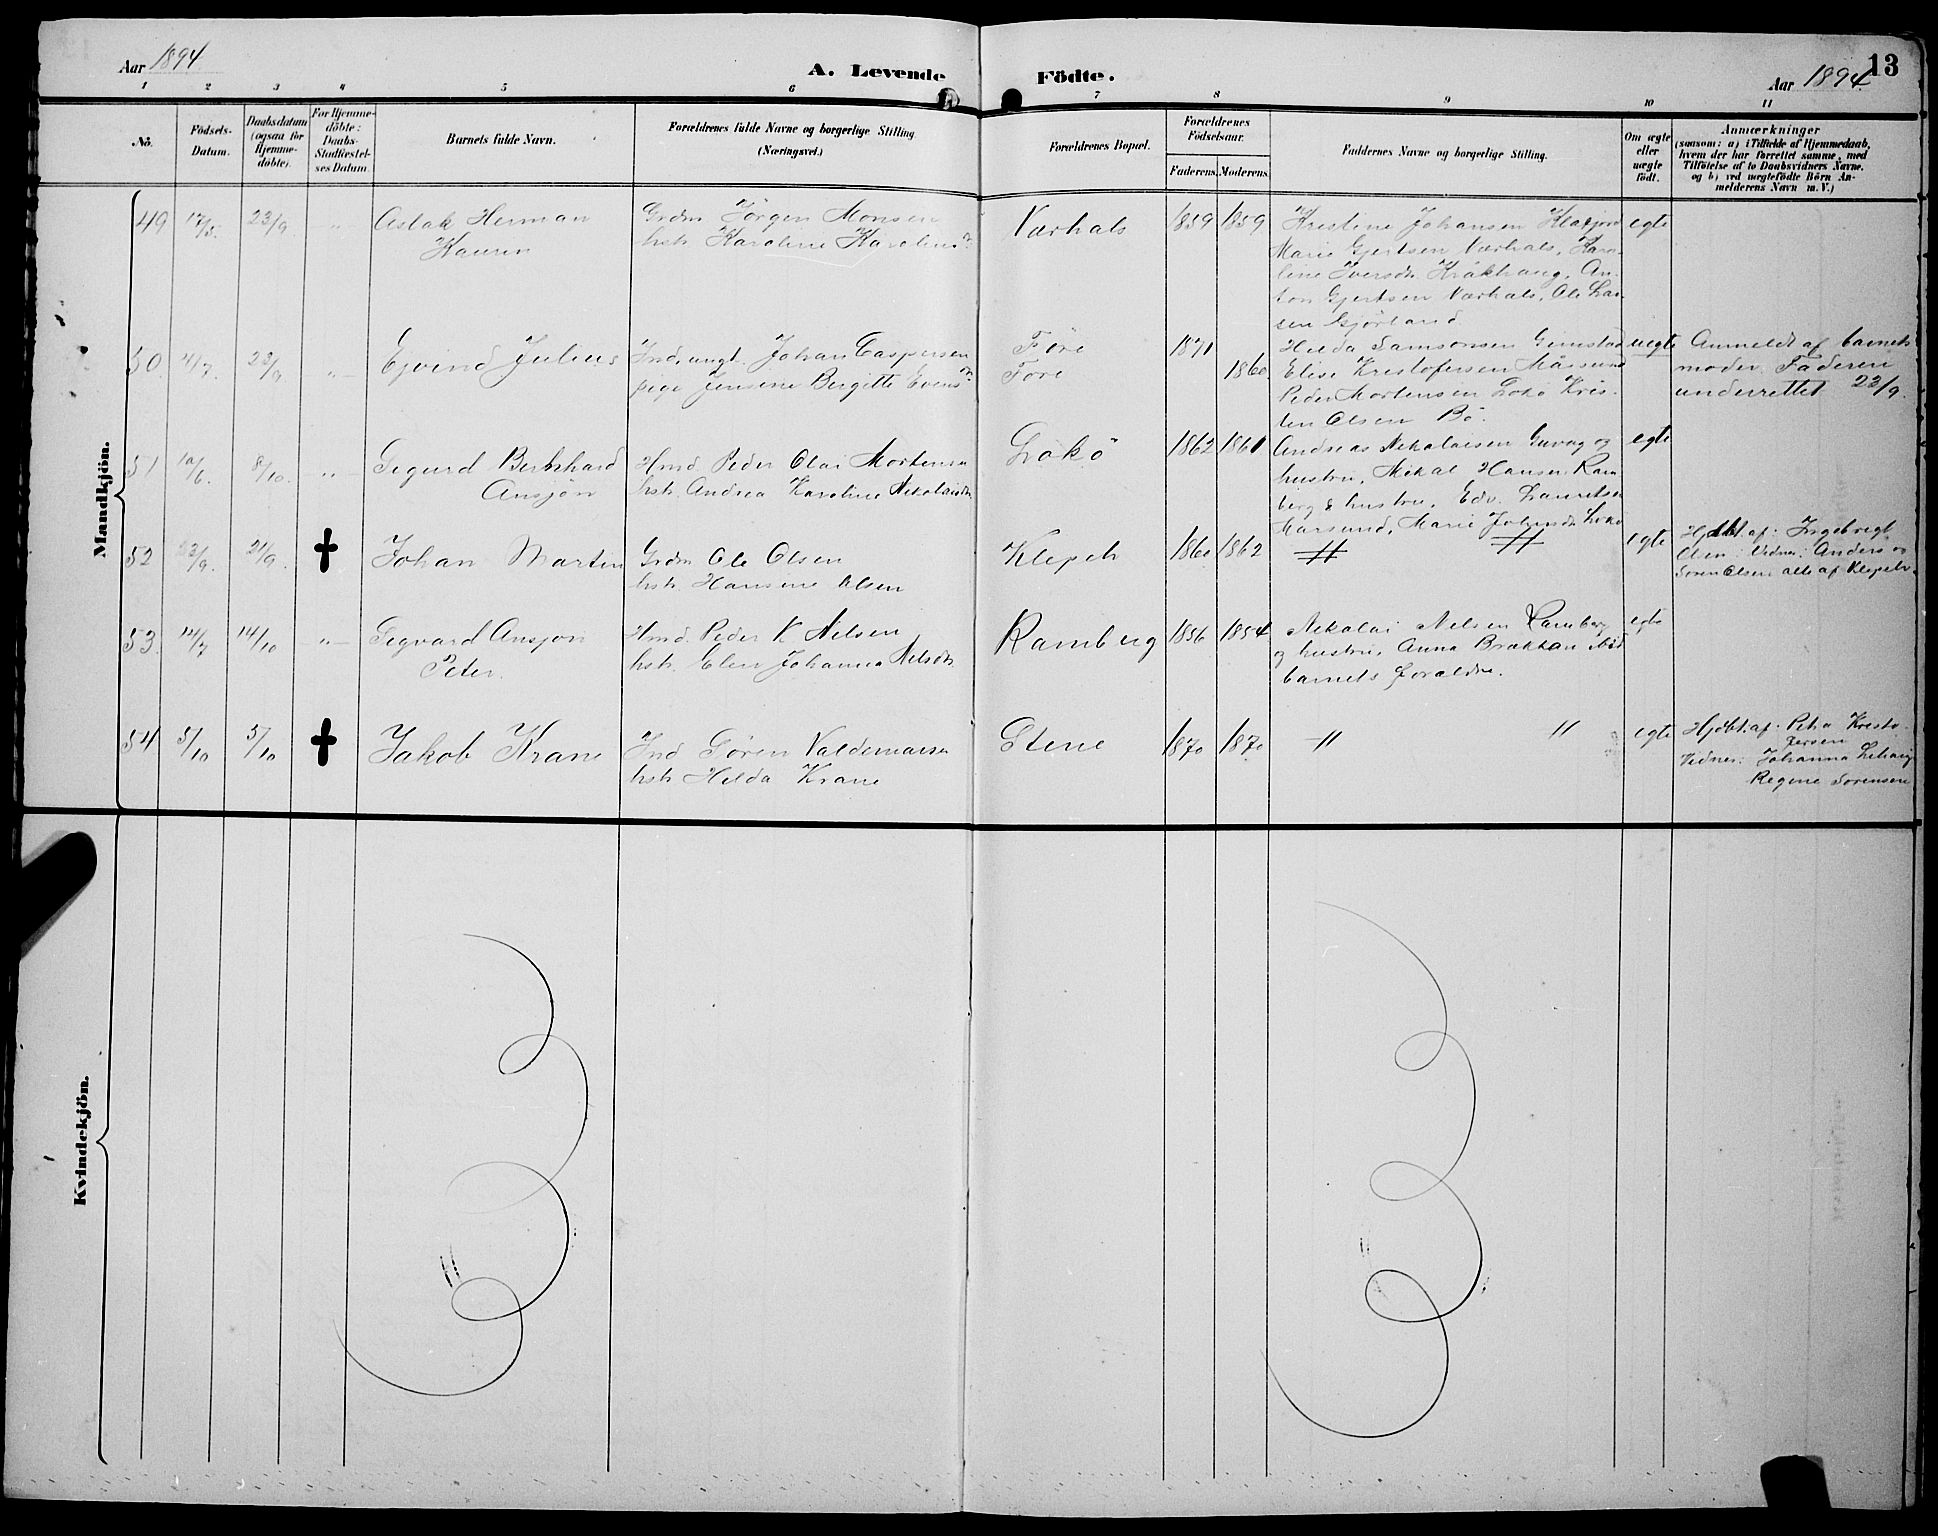 Aar 1894
A. Levende Födte.
Aar 1894
13
1 2 3 4 5 6 7 8 9 10 11
No.
Födsels-
Datum.
Daabsdatum
(ogsaa for
Hjemme-
döbte).
For Hjemme-
döbte:
Daabs-
Stadfæstel-
ses Datum.
Barnets fulde Navn.
Forældrenes fulde Navne og borgerlige Stilling
(Næringsvei.)
Forældrenes Bopæl.
Forældrenes
Födselsaar.
Faderens. Moderens.
Faddernes Navne og borgerlige Stilling.
Om ægte
eller
uægte
födt.
Anmærkninger
(saasom: a) i Tilfælde af Hjemmedaab,
hvem der har forrettet samme, med
Tilföielse af to Daabsvidners Navne.
og b) ved uægtefödte Börn An-
melderens Navn m. V.)
Mandkjön.
49 17/5. 23/9 "
Aslak Herman
Haurin
Grdm Jörgen Monsen
hstr Karoline Karolius dr
Værhals
1859 1859
Kristine Johansen Klakjord
Marie Gjertsen Værhals, Karo-
line Iversdr Kråkhaug, An-
ton Gjertsen Værhals, Ole Lar-
sen Gjörland
egte
50 4/7. 23/9 "
Ejvind Julius
Ind. ungk. Johan Caspersen
pige Jensine Bergitte Evensdr
Före
Före
1871
1860
Hilda Samsonsen Gimstad
Elise Kristofersen Mårsund
Peder Mortensen Lokö Kris-
ten Olsen Bö.
uegte
Anmeldt af barnets
moder. Faderen
underrettet 23/9.
51 10/6. 8/10. "
Sigurd Bernhard
Ansjön
Hmd. Peder Olai Mortensen
hstr. Andrea Karoline Nikolaisdr
Lokö
1862 1861
Andreas Nikolaisen Guvåg og
hustru, Mikal Hansen Ram
berg & hustru, Edv. Lauritsen
Mårsund, Marie Johnsdr Lokö
egte
52 23/9. 24/9. †
Johan Martin
Grdm Ole Olsen
hstr. Hansine Olsen
Klepeh
1860 1862
" "
egte
Hjdbt af: Ingebrigt
Olsen Vidner: Anders og
Sören Olsen alle af Klepeh.
53. 14/7 14/10 "
Sigvard Ansjon
Peter.
Hmd. Peder K Nilsen
hstr. Elen Johanna Nilsdr
Ramberg
1856 1854
Nikolai Nilsen Ramberg
og hustru, Anna Brækkan ibid
barnets forældre.
egte
54 5/10 5/10 †
Jakob Krane
Ind Sören Valdemarsen
hstr Hilda Krane
Stene
1870 1870
" "
egte
Hjdbt. af: Petra Kristo-
fersen
Vidner: Johanna Lihaug
Regine Sörensen
Kvindekjön.